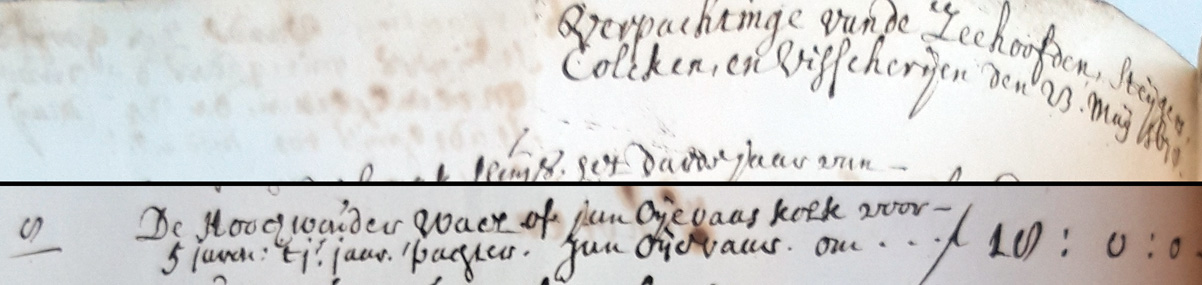 Verpachtinge vande Zeehoofden, Steyger
Colcken, en Visscherijen den 23. Maij
het darde jaar van –
9 De Hoogwaider Waer of Jan Oijevaas kolk voor –
5 jaren: t j.^e jaar. pagter. Jan Oijevaar. om . . . f 10 : 0 : 0